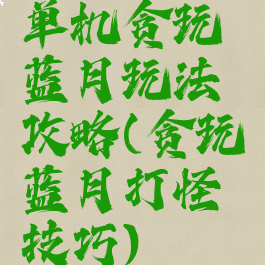 单机贪玩
蓝月玩法
攻略(贪玩
蓝月打怪
技巧)